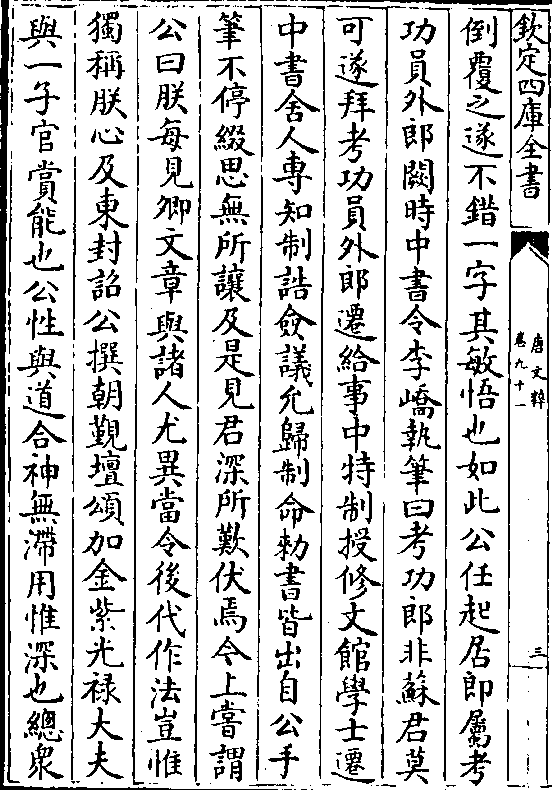 欽定四庫全書
唐文粹
卷九十一
三
倒覆之遂不錯一字其敏悟也如此公任起居即屬考
功員外郎闕時中書令李嶠執筆曰考功郎非蘇君莫
可遂拜考功員外郎遷給事中特制授修文館學士遷
中書舍人專知制誥僉議允歸制命勅書皆出自公手
筆不停綴思無所讓及是見君深所歎伏焉今上嘗謂
公曰朕每見卿文章與諸人尤異當令後代作法豈惟
獨稱朕心及東封詔公撰朝覲壇頌加金紫光禄大夫
與一子官賞能也公性與道合神無滯用惟深也總衆